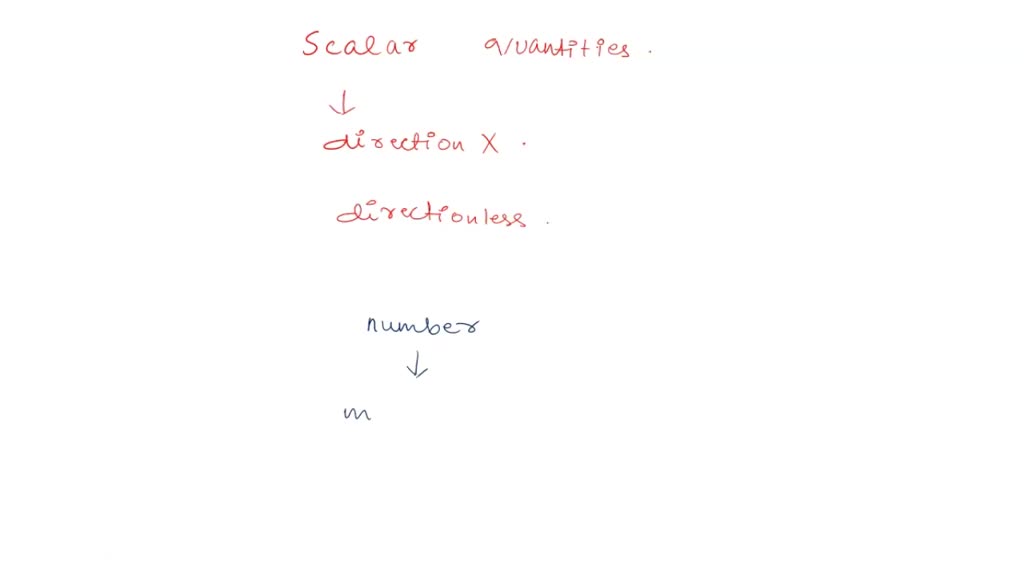 Scalar quantities .
↓
direction X .
directionless .
number
↓
m